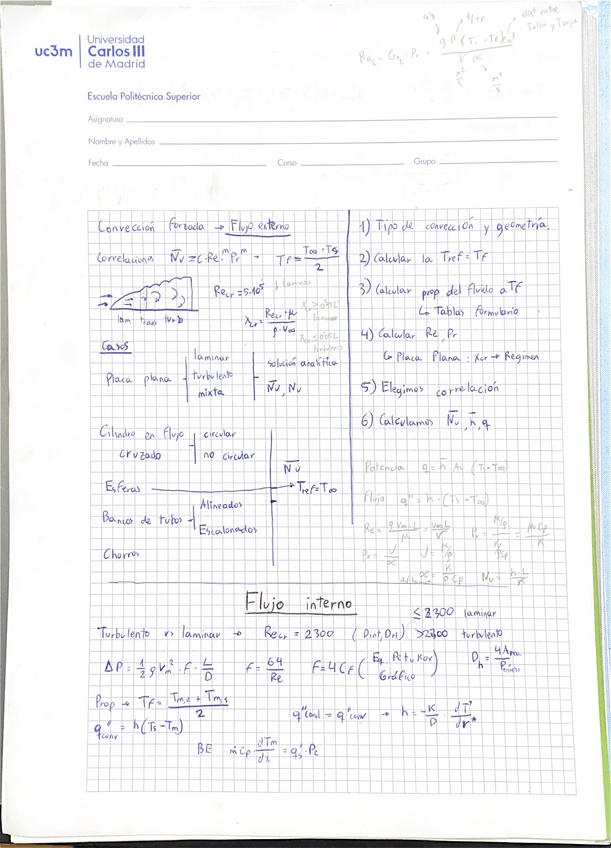 uc3m Universidad Carlos III de Madrid
Ra_L = Gr_L · Pr = g β (Ts - T∞) L³ / ν α
m²/s m²/s
Escuela Politécnica Superior
Asignatura
Nombre y Apellidos
Fecha Curso Grupo
Convección forzada → Flujo externo
Correlaciones N̄u = C·Re^m Pr^m - TF = (T∞ + Ts)/2
Re_cr = 5·10⁵ ↓ laminar
lam trans turb
x_cr = Re_cr · μ / ρ · V∞
Casos
Placa plana
laminar
turbulento
mixta
solución analítica
N̄u, Nu
Cilindro en flujo cruzado
circular
no circular
N̄u
Esferas → Tref = T∞
Bancos de tubos
Alineados
Escalonados
Chorros
1) Tipo de convección y geometría.
2) Calcular la Tref = TF
3) Calcular prop del fluido a TF
↳ Tablas formulario
4) Calcular Re, Pr
↳ Placa Plana: x_cr → Regimen
5) Elegimos correlación
6) Calculamos N̄u, h̄, q
Potencia q = h̄ · As (Ts - T∞)
Flujo q'' = h · (Ts - T∞)
Re = ρ V∞ L / μ = V∞ L / ν Pr = μ/ρ / K/ρCp = μ Cp / K
Pr = ν / α ν = μ / ρ
α = K / ρ Cp Nu = h · L / K
Flujo interno
≤ 2300 laminar
Turbulento vs laminar → Re_cr = 2300 (Dint, DH) > 2300 turbulento
ΔP = 1/2 ρ Vm² · F · L/D f = 64/Re F = 4 CF ( Eq. Petukov Gráfico D_h = 4A / P
Prop → TF = (Tm,e + Tm,s) / 2
q''conv = h (Ts - Tm)
q''cond = q''conv → h = -K/D · dT*/dr*
BE ṁ Cp · dTm/dx = q''s · Pc